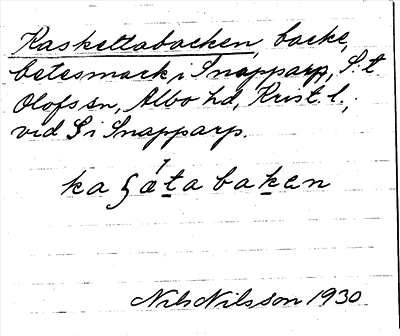 Raskettabacken, backe,
betesmark i Snapparp, S:t
Olofs sn, Albo hd, Krist. l.,
vid S i Snapparp.
Nils Nilsson 1930